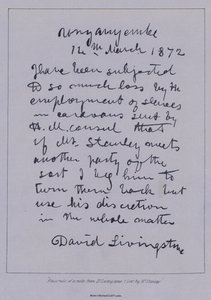 Unyanyembe
12th March 1872
I have been subjected
to so much loss by the
employment of slaves
in caravans sent by
H. M. consul that
if Mr Stanley meets
another party of the
sort I beg him to
turn them back but
use his discretion
in the whole matter
David Livingstone
Facsimile of a note from Dr Livingstone lent by Mr Stanley